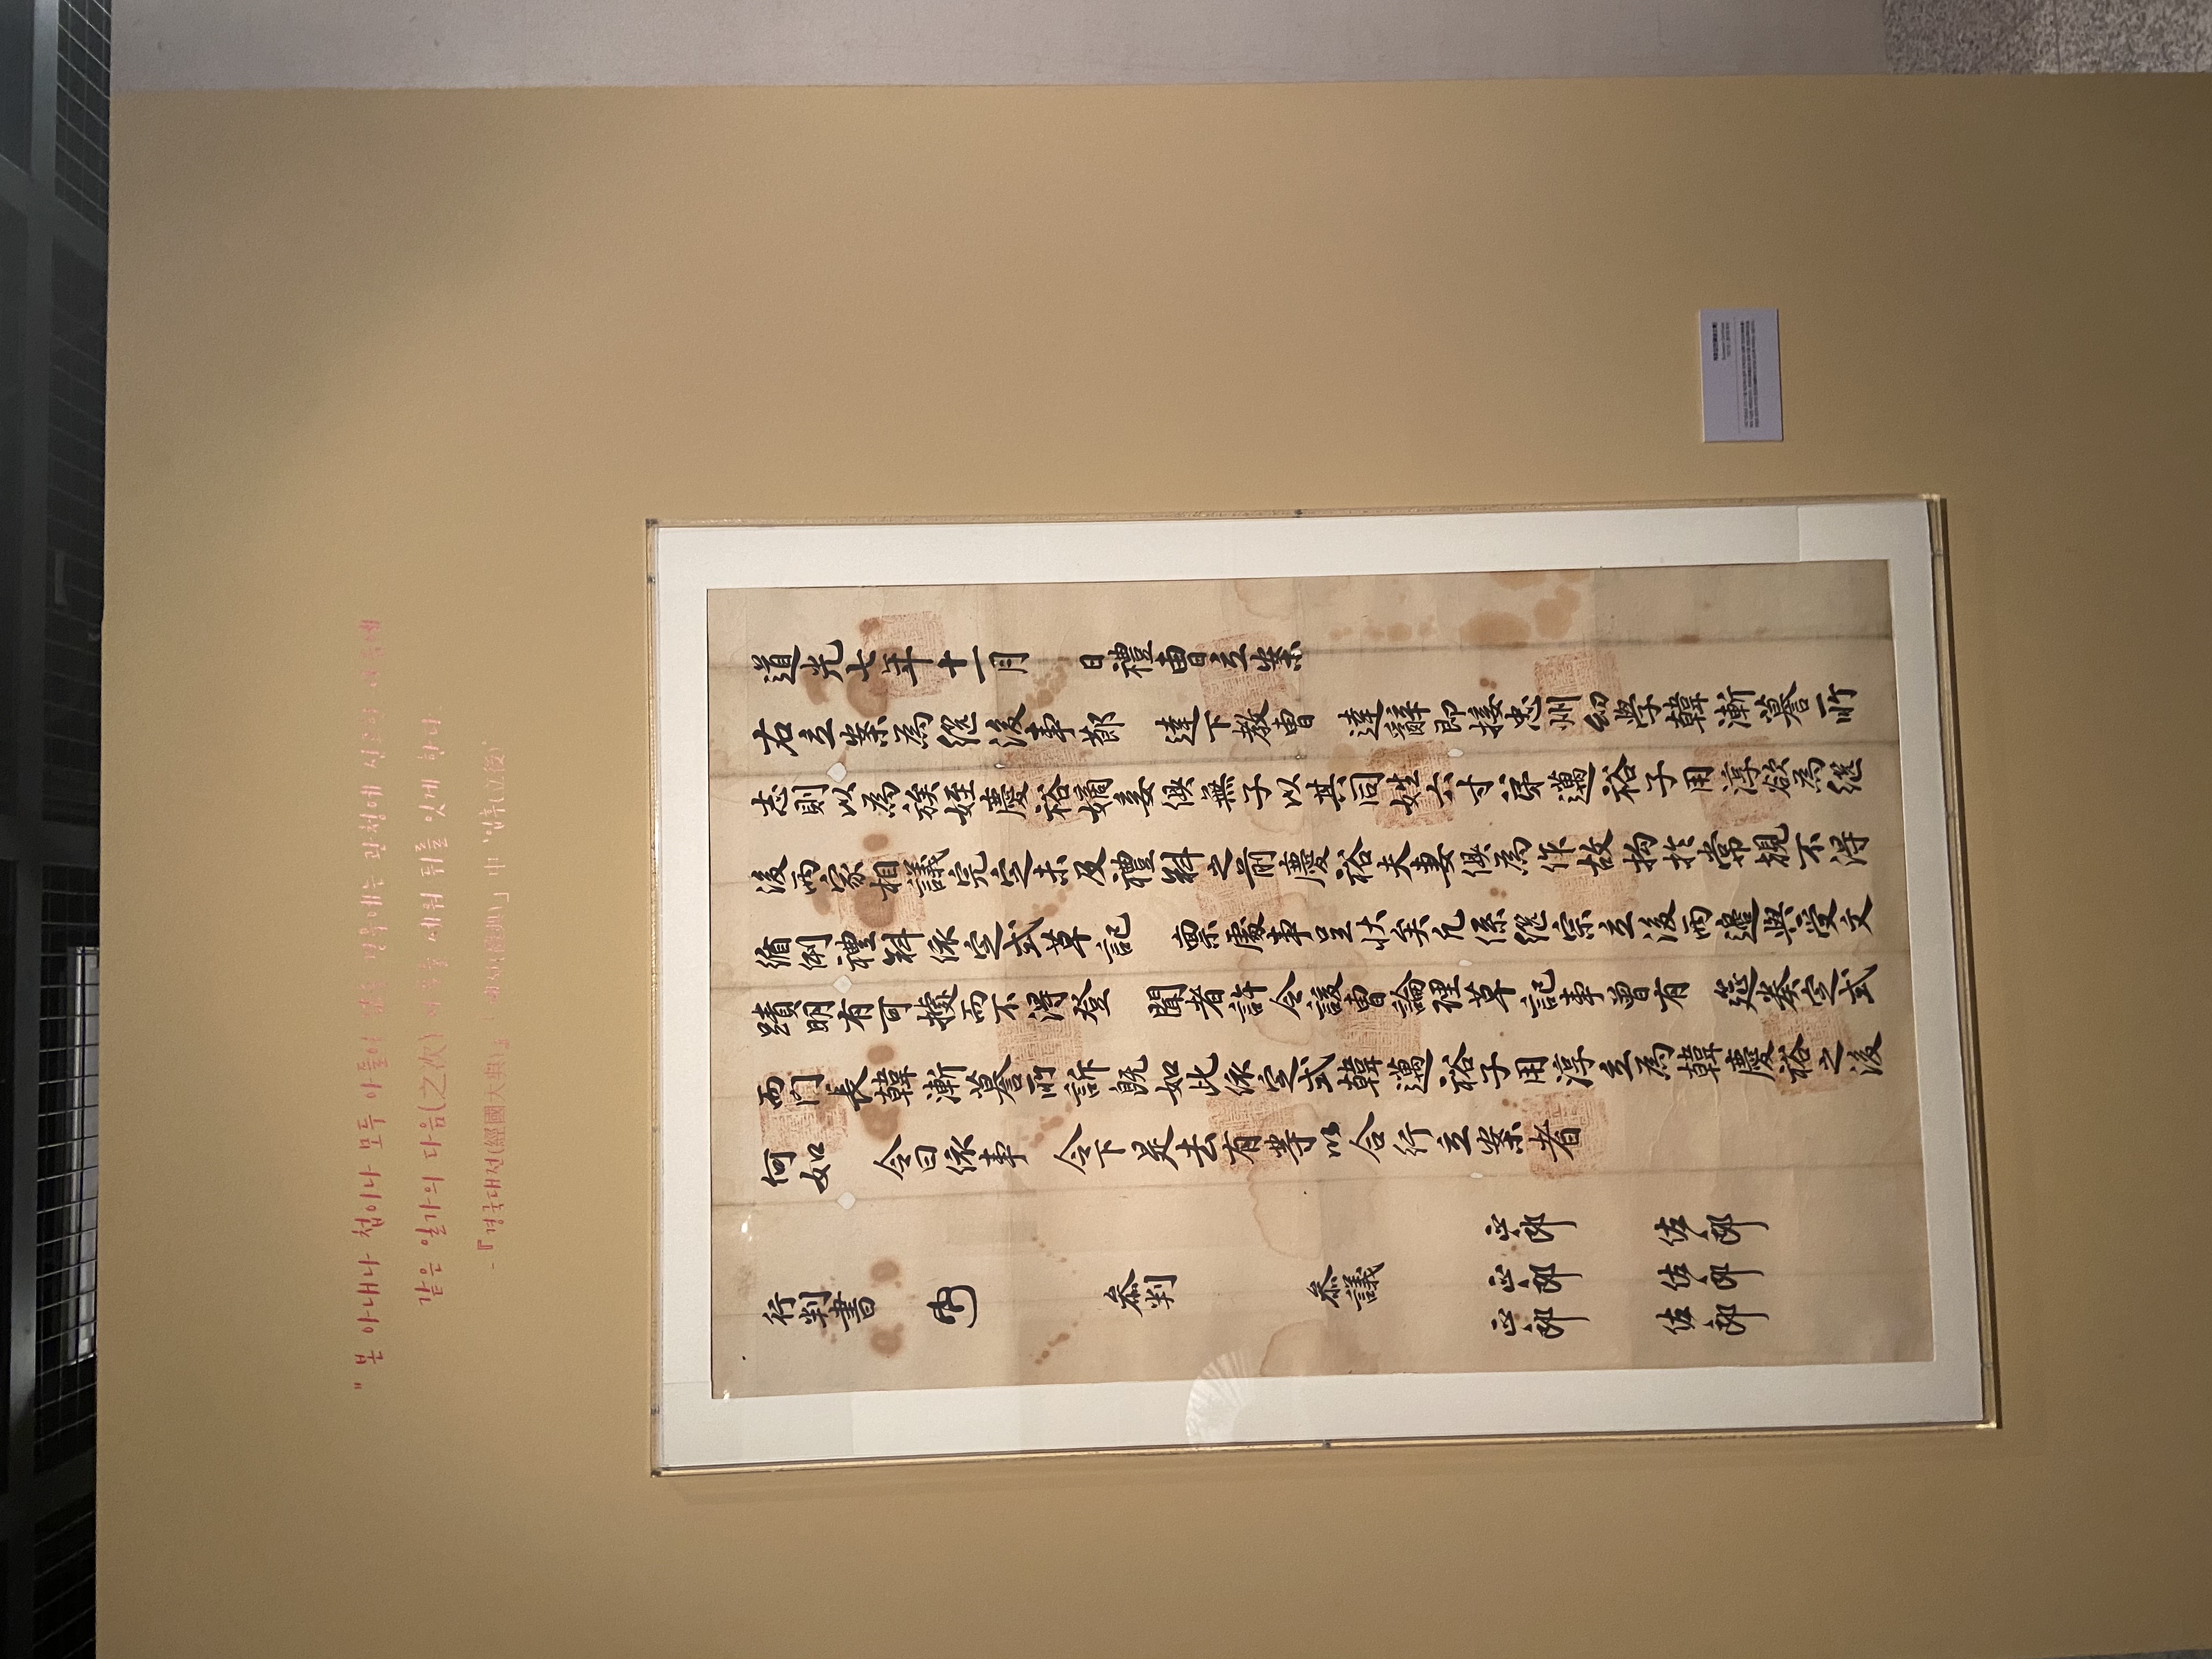 " 본 아내나 첩이나 모두 아들이 없는 경우에는 관청에 신고한 다음에
같은 일가의 다음(之次) 자손을 세워 뒤를 잇게 한다.
-『경국대전(經國大典)』「예전(禮典)」中 '입후(立後)'
道光七年十一月 日禮曹立案
右立案為继後事節 達下敎曹 達辭即接忠州幼學韓漸蕃所
志則以為族姪慶裕嫡妾俱無子以其同姓六寸弟邁裕子用淳欲為继
後兩家相議完定未及禮斜之前慶裕夫妻俱為作故拘於常規不得
循例禮斜依定式草記 禀處事呈狀矣凡係继宗立後兩邊與受文
蹟明有可據而不得登 聞者許令該曹論理草記事曾有 筵奏定式
兩門長韓漸蕃所訴旣如此依定式韓邁裕子用淳立為韓慶裕之後
何如 令曰依事 令下是去有等以合行立案者
行判書 參判 參議 正郎 佐郎
正郎 佐郎
正郎 佐郎